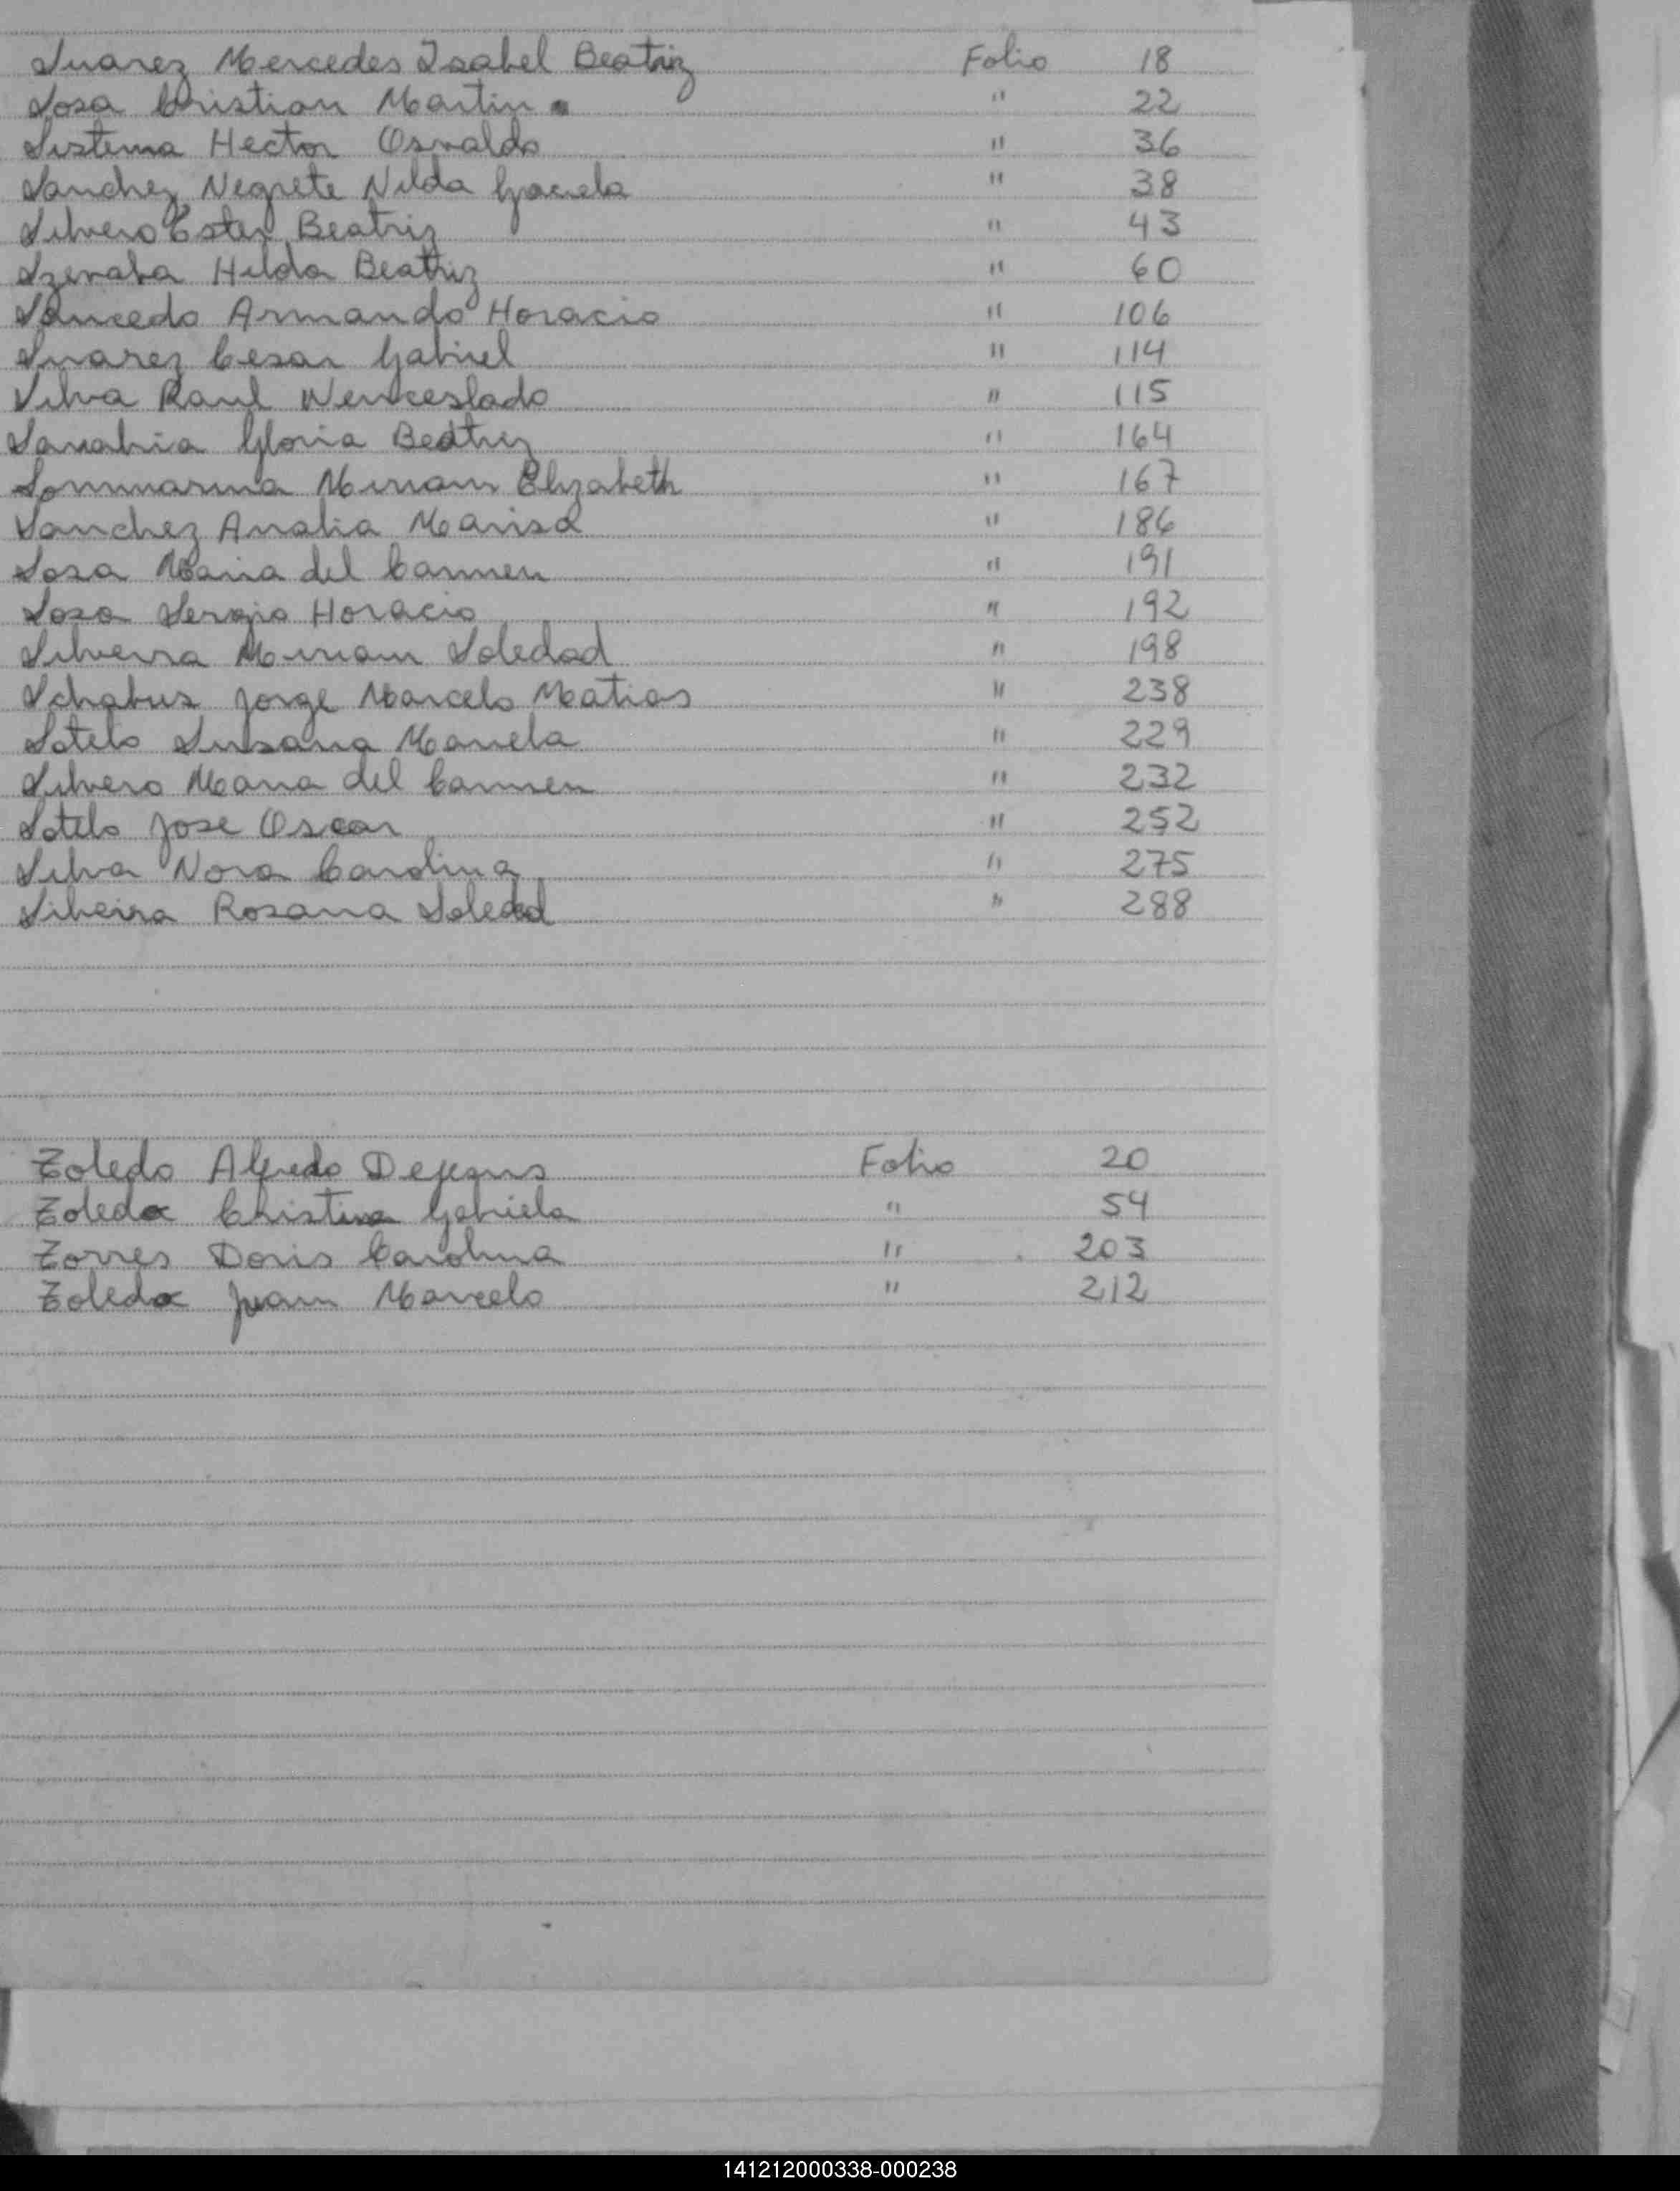 Suarez Mercedes Isabel Beatriz Folio 18
Sosa Cristian Martin " 22
Sistema Hector Osvaldo " 36
Sanchez Negrete Nilda Graciela " 38
Silvero Ester Beatriz " 43
Hilda Beatriz " 60
Saucedo Armando Horacio " 106
Suarez Cesar Gabriel " 114
Silva Raul Wenceslado " 115
Sanabria Gloria Beatriz " 164
Sommariva Miriam Elizabeth " 167
Sanchez Analia Marisa " 186
Sosa Maria del Carmen " 191
Sosa Sergio Horacio " 192
Silveira Miriam Soledad " 198
Schabus Jorge Marcelo Matias " 238
Sotelo Susana Mariela " 229
Silvero Maria del Carmen " 232
Sotelo Jose Oscar " 252
Silva Nora Carolina " 275
Silveira Rosana Soledad " 288
Toledo Alfredo Dejesus Folio 20
Toledo Christina Gabriela " 54
Torres Doris Carolina " 203
Toledo Juan Marcelo " 212
141212000338-000238